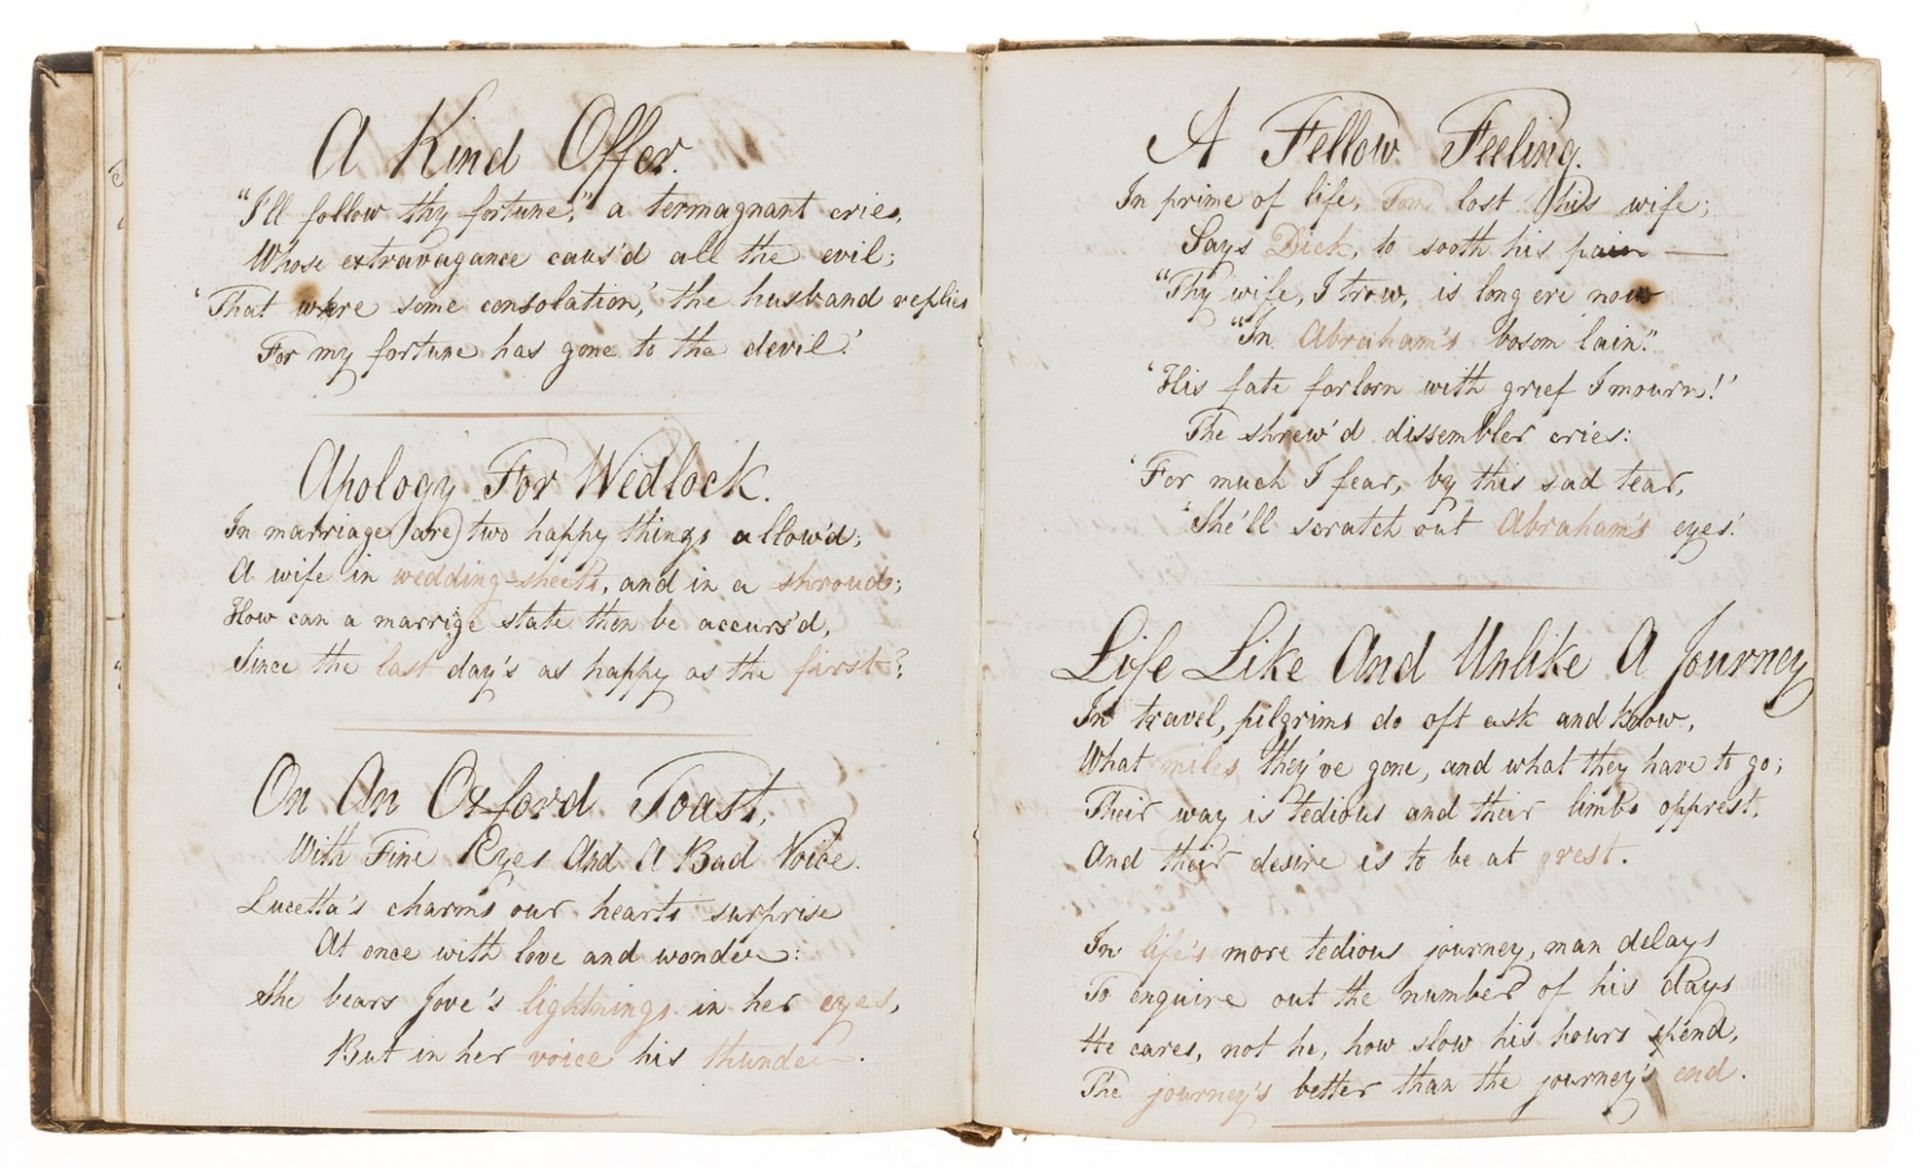 A Kind Offer.
"I'll follow thy fortune," a termagnant cries,
Whose extravagance caus'd all the evil;
'That were some consolation,' the husband replies
For my fortune has gone to the devil.'
Apology For Wedlock.
In marriage (are) two happy things allow'd;
A wife in wedding-sheets, and in a shroud;
How can a marrige state then be accurs'd,
Since the last day's as happy as the first?
On An Oxford Toast,
With Fine Eyes And A Bad Voice.
Lucetta's charms our hearts surprise
At once with love and wonder:
She bears Jove's lightnings in her eyes,
But in her voice his thunder.
A Fellow Feeling.
In prime of life, Tom lost his wife;
Says Dick, to sooth his pain —
"Thy wife, I trow, is long ere now
"In Abraham's bosom lain."
'His fate forlorn with grief I mourn!'
The shrew'd dissembler cries:
'For much I fear, by this sad tear,
'She'll scratch out Abraham's eyes.'
Life Like And Unlike A Journey
In travel, pilgrims do oft ask and know,
What miles they've gone, and what they have to go;
Their way is tedious and their limbs opprest,
And their desire is to be at grest.
In life's more tedious journey, man delays
To enquire out the number of his days
He cares, not he, how slow his hours spend,
The journey's better than the journey's end.